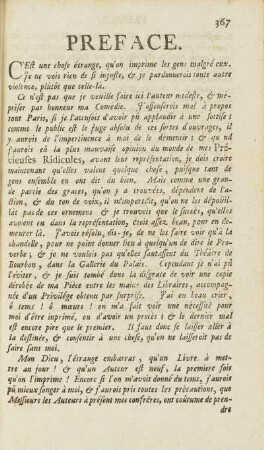 367
PREFACE.
C'Est une chose étrange, qu'on imprime les gens malgré eux.
Je ne vois rien de si injuste, & je pardonnerois toute autre
violence, plûtôt que celle-là.
Ce n'est pas que je veuille faire ici l'auteur modeste, & mé-
priser par honneur ma Comédie. J'offenserois mal à propos
tout Paris, si je l'accusois d'avoir pû applaudir à une sottise:
comme le public est le juge absolu de ces sortes d'ouvrages, il
y auroit de l'impertinence à moi de le démentir: & quand
j'aurois eû la plus mauvaise opinion du monde de mes Pré-
cieuses Ridicules, avant leur représentation, je dois croire
maintenant qu'elles valent quelque chose, puisque tant de
gens ensemble en ont dit du bien. Mais comme une grande
partie des graces, qu'on y a trouvées, dépendent de l'ac-
tion, & du ton de voix, il m'importoit, qu'on ne les dépouil-
lât pas de ces ornemens & je trouvois que le succès, qu'elles
avoient eu dans la représentation, étoit assez beau, pour en de-
meurer là. J'avois résolu, dis-je, de ne les faire voir qu'à la
chandelle, pour ne point donner lieu à quelqu'un de dire le Pro-
verbe; & je ne voulois pas qu'elles sautassent du Théatre de
Bourbon, dans la Gallerie du Palais. Cependant je n'ai pû
l'éviter, & je suis tombé dans la disgrace de voir une copie
dérobée de ma Piéce entre les mains des Libraires, accompag-
née d'un Privilége obtenu par surprise. J'ai eu beau crier,
ô tems! ô mœurs! on m'a fait voir une nécessité pour
moi d'être imprimé, ou d'avoir un procès & le dernier mal
est encore pire que le premier. Il faut donc se laisser aller à
la destinée, & consentir à une chose, qu'on ne laisseroit pas de
faire sans moi.
Mon Dieu, l'étrange embarras, qu'un Livre à met-
tre au jour! & qu'un Auteur est neuf, la premiere fois
qu'on l'imprime! Encore si l'on m'avoit donné du tems, j'aurois
pû mieux songer à moi, & j'aurois pris toutes les précautions, que
Messieurs les Auteurs à présent mes confréres, ont coûtume de pren-
dre